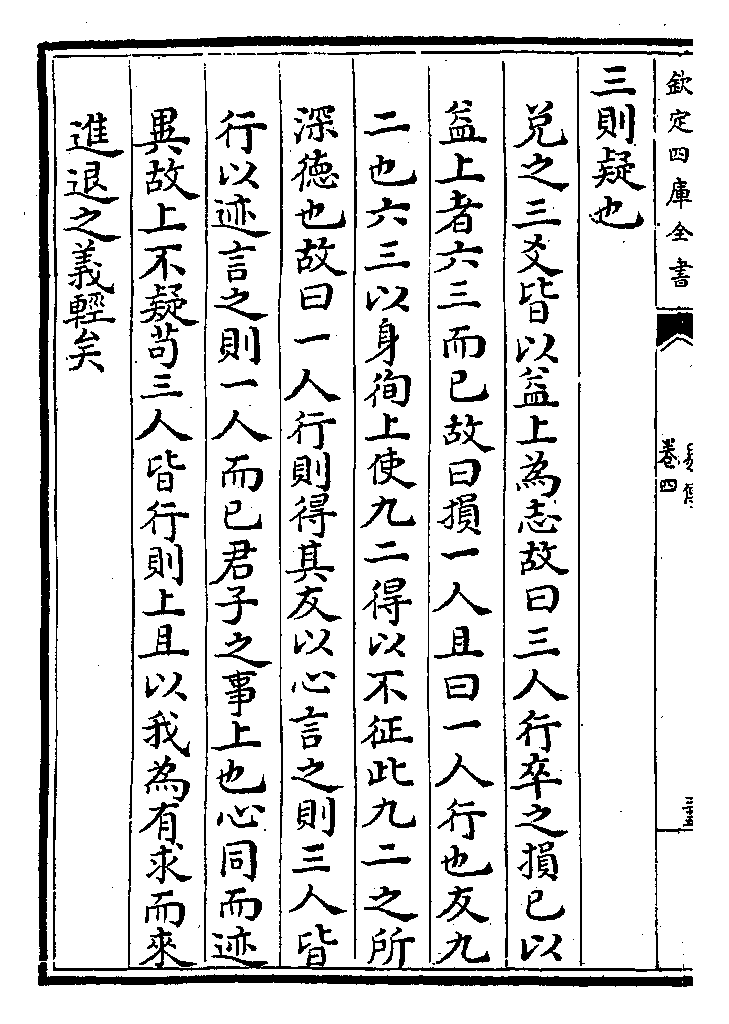 欽定四庫全書
卷四
三則疑也
兌之三爻皆以益上為志故曰三人行卒之損已以
益上者六三而已故曰損一人且曰一人行也友九
二也六三以身徇上使九二得以不征此九二之所
深德也故曰一人行則得其友以心言之則三人皆
行以迹言之則一人而已君子之事上也心同而迹
異故上不疑苟三人皆行則上且以我為有求而來
進退之義輕矣